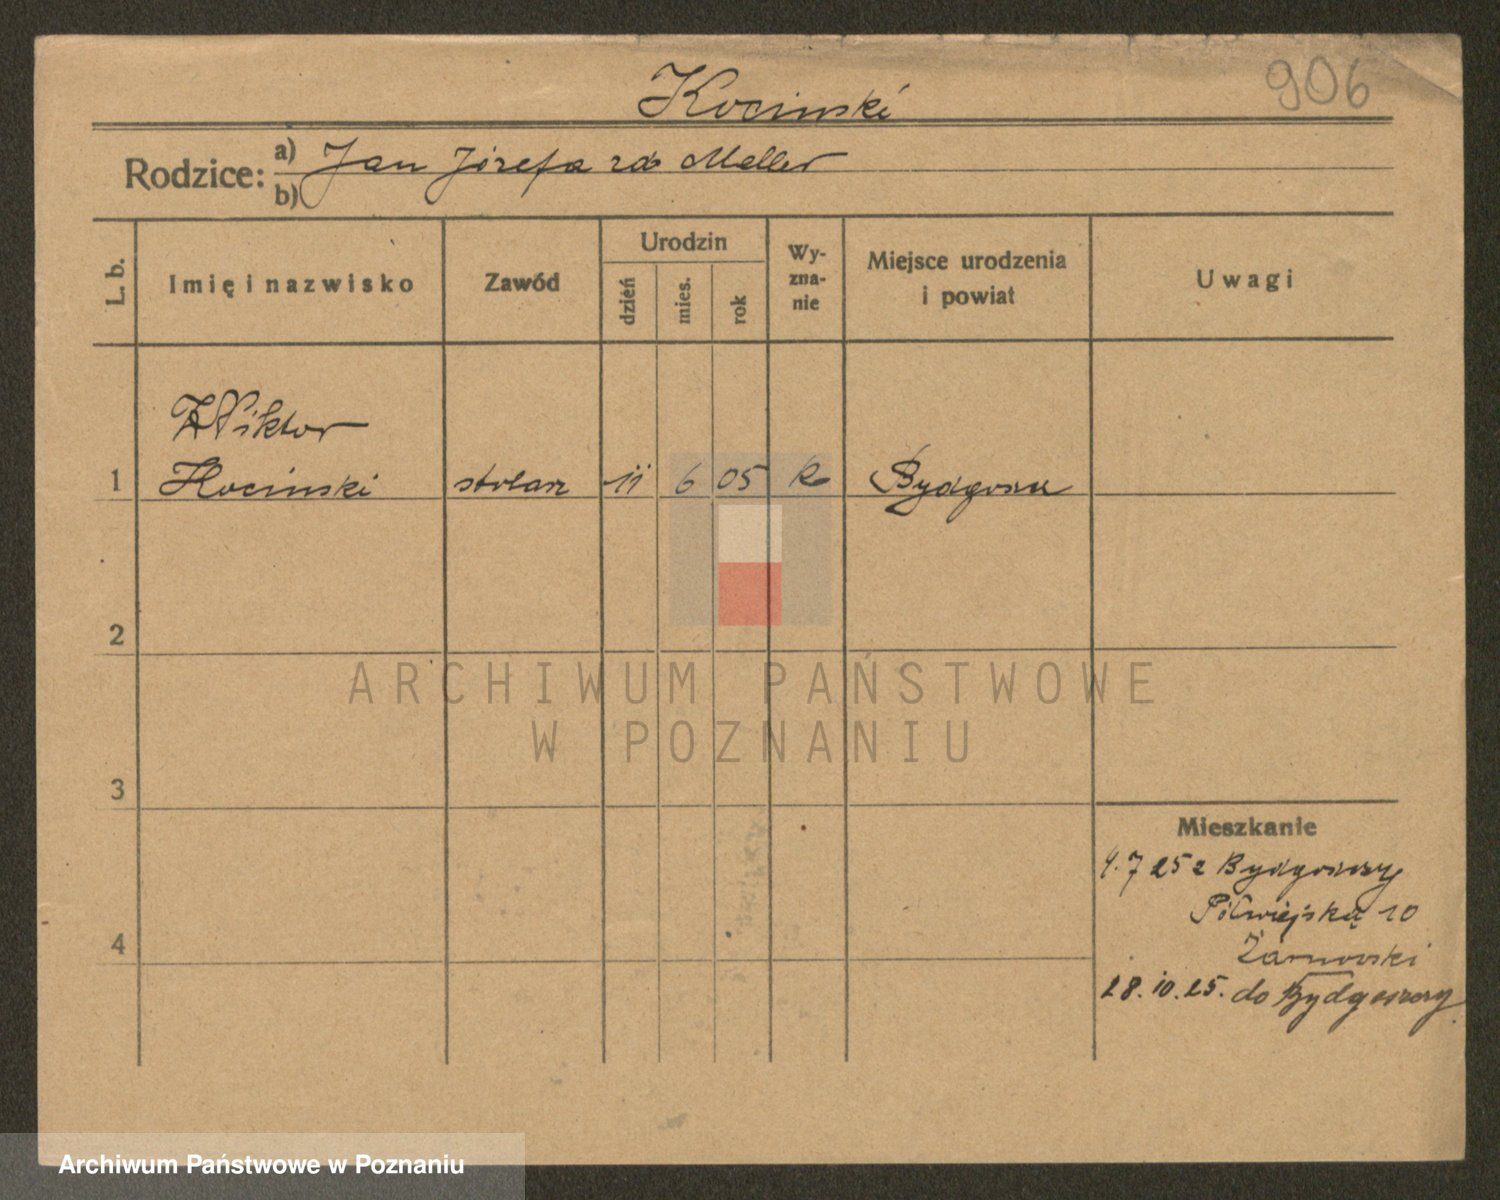 906
Kocinski
Rodzice: a) Jan Józefa zd Meller
b)
L. b. Imię i nazwisko Zawód Urodzin dzień mies. rok Wy-zna-nie Miejsce urodzenia i powiat Uwagi
Wiktor
1 Kocinski stolarz 11 6 05 k Bydgoszcz
2
ARCHIWUM PAŃSTWOWE
W POZNANIU
3
Mieszkanie
4.7 25 z Bydgoszczy
Półwiejska 10
4
Żarnowski
28.10.25. do Bydgoszczy
Archiwum Państwowe w Poznaniu